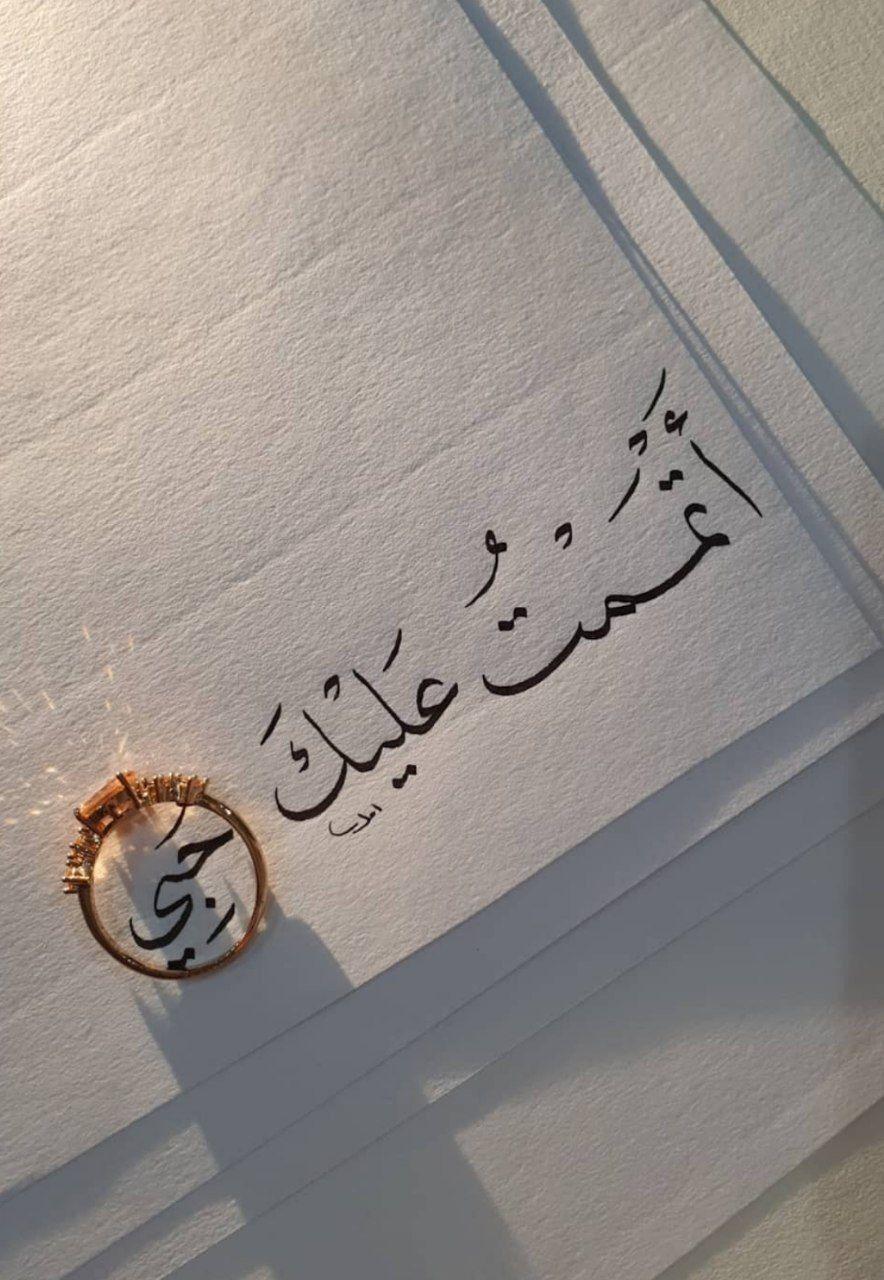 أَتْمَمْتُ عَلَيْكَ حُبِّي